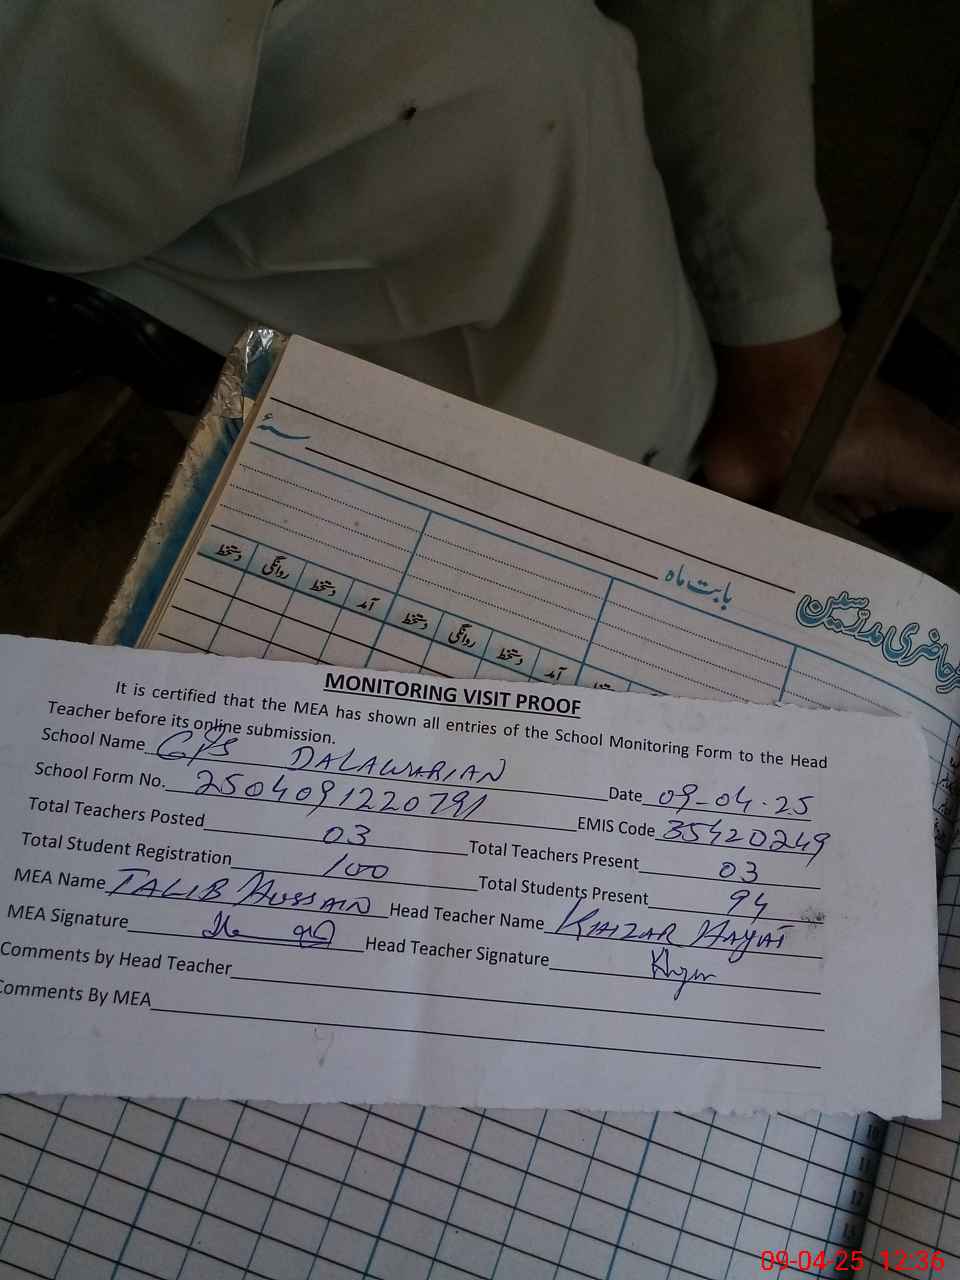 سنہء
بابت ماہ
حاضری مدرسین
دستخط روانگی دستخط آمد دستخط روانگی دستخط آمد
MONITORING VISIT PROOF
It is certified that the MEA has shown all entries of the School Monitoring Form to the Head
Teacher before its online submission.
School Name GPS DALAWARIAN Date 09-04-25
School Form No. 2504091220791 EMIS Code 35420249
Total Teachers Posted 03 Total Teachers Present 03
Total Student Registration 100 Total Students Present 94
MEA Name TALIB HUSSAIN Head Teacher Name KHIZAR HAYAT
MEA Signature Head Teacher Signature
Comments by Head Teacher
Comments By MEA
10
11
12
13
09-04-25 12:36